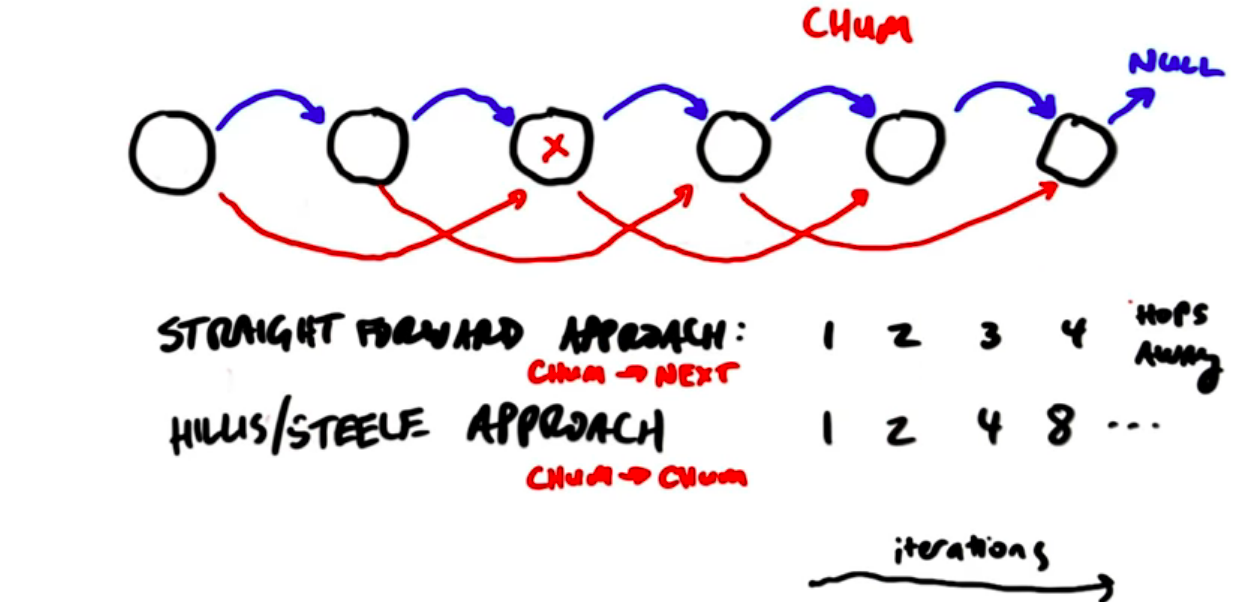 CHUM
NULL
X
STRAIGHT FORWARD APPROACH: 1 2 3 4 HOPS AWAY
CHUM → NEXT
HILLIS/STEELE APPROACH 1 2 4 8 ...
CHUM → CHUM
iterations